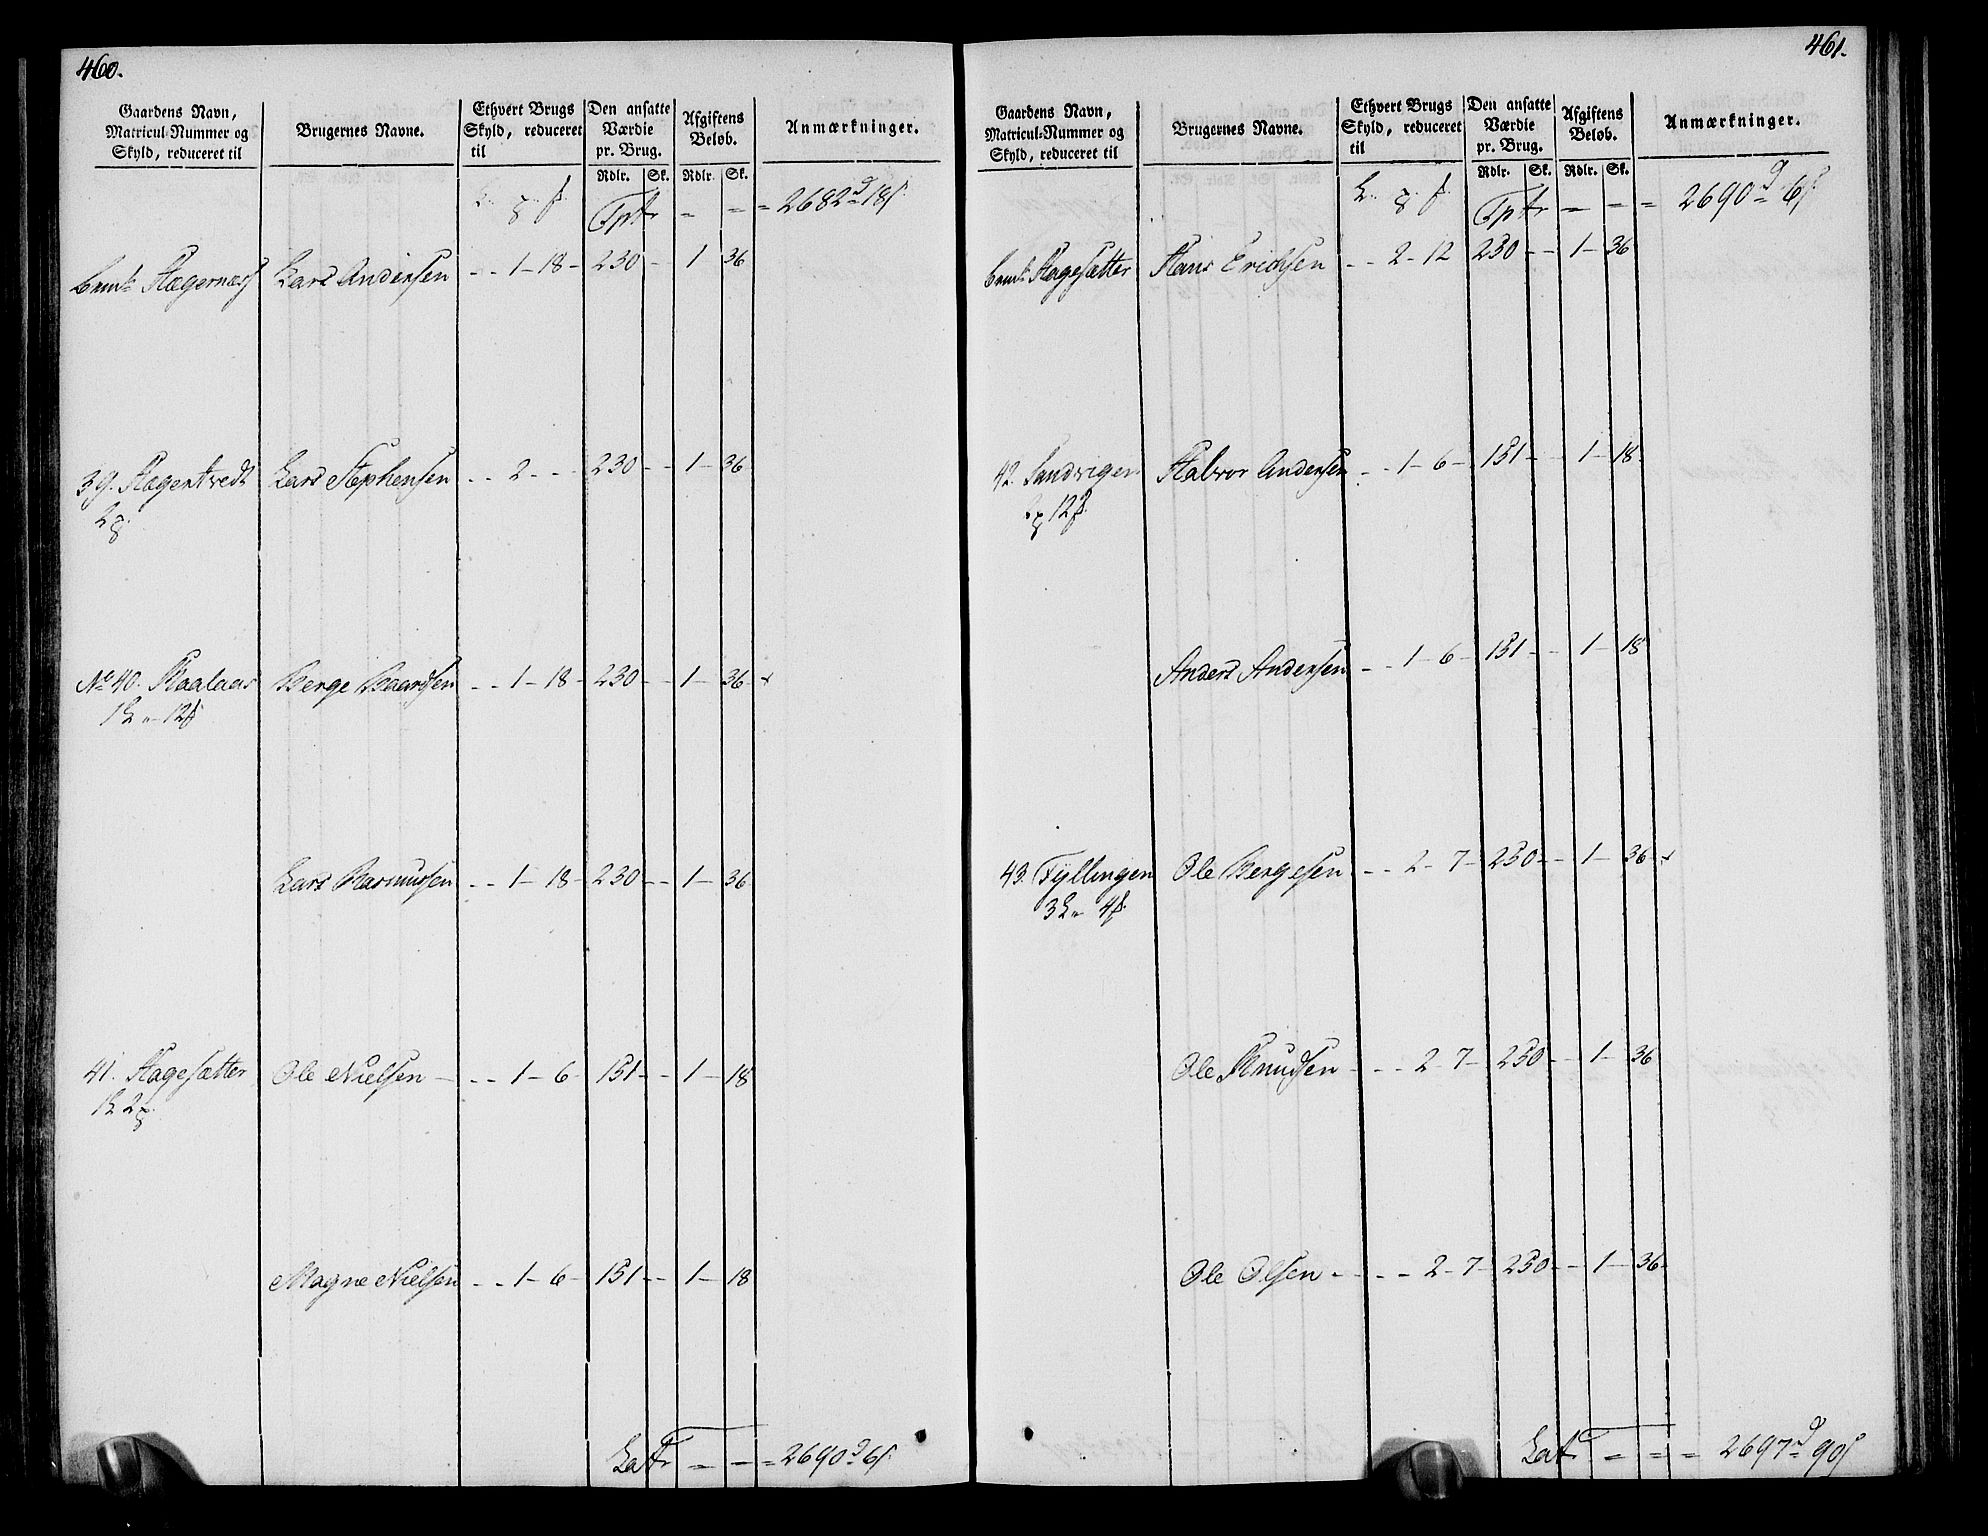 460.
Gaardens Navn, Matricul-Nummer og Skyld, reduceret til
Brugernes Navne.
Ethvert Brugs Skyld, reduceret til
Den ansatte Værdie pr. Brug.
Afgiftens Beløb.
Anmærkninger.
Rdlr. Sk. Rdlr. Sk.
Tptr = = = 2682 d 18 s
Lars Andersen - - 1 - 18 - 230 - - 1 36
39. Hagentvedt Lars Stephensen - - 2 - - - 230 - - 1 - 36
No 40. Lars
Berge Baardsen - - 1 - 18 - 230 - - 1 - 36 -
Lars Rasmussen - - 1 - 18 - 230 - - 1 - 36
41. Hagesætter Ole Nielsen - - - 1 - 6 - 151 - - 1 - 18
Magne Nielsen - - 1 - 6 - 151 - - 1 - 18
Latr = - = 2690 d 6 s
461.
Gaardens Navn, Matricul-Nummer og Skyld, reduceret til
Brugernes Navne.
Ethvert Brugs Skyld, reduceret til
Den ansatte Værdie pr. Brug.
Afgiftens Beløb.
Anmærkninger.
Rdlr. Sk. Rdlr. Sk.
Tptr = - = 2690 d 6 s
Hagesætter Hans Erichsen - - 2 - 12 230 - - 1 - 36
42. Sandvigen Halvor Andersen - - 1 - 6 - 151 - - 1 - 18
12
Anders Andersen - - 1 - 6 - 151 - - 1 18
43. Fyllingen Ole Bergesen - - 2 - 7 - 250 - - 1 - 36
Ole Knudsen - - - 2 - 7 - 250 - - 1 - 36
Ole Olsen - - - - 2 - 7 - 250 - - 1 - 36
Latr = = = 2697 d 90 s